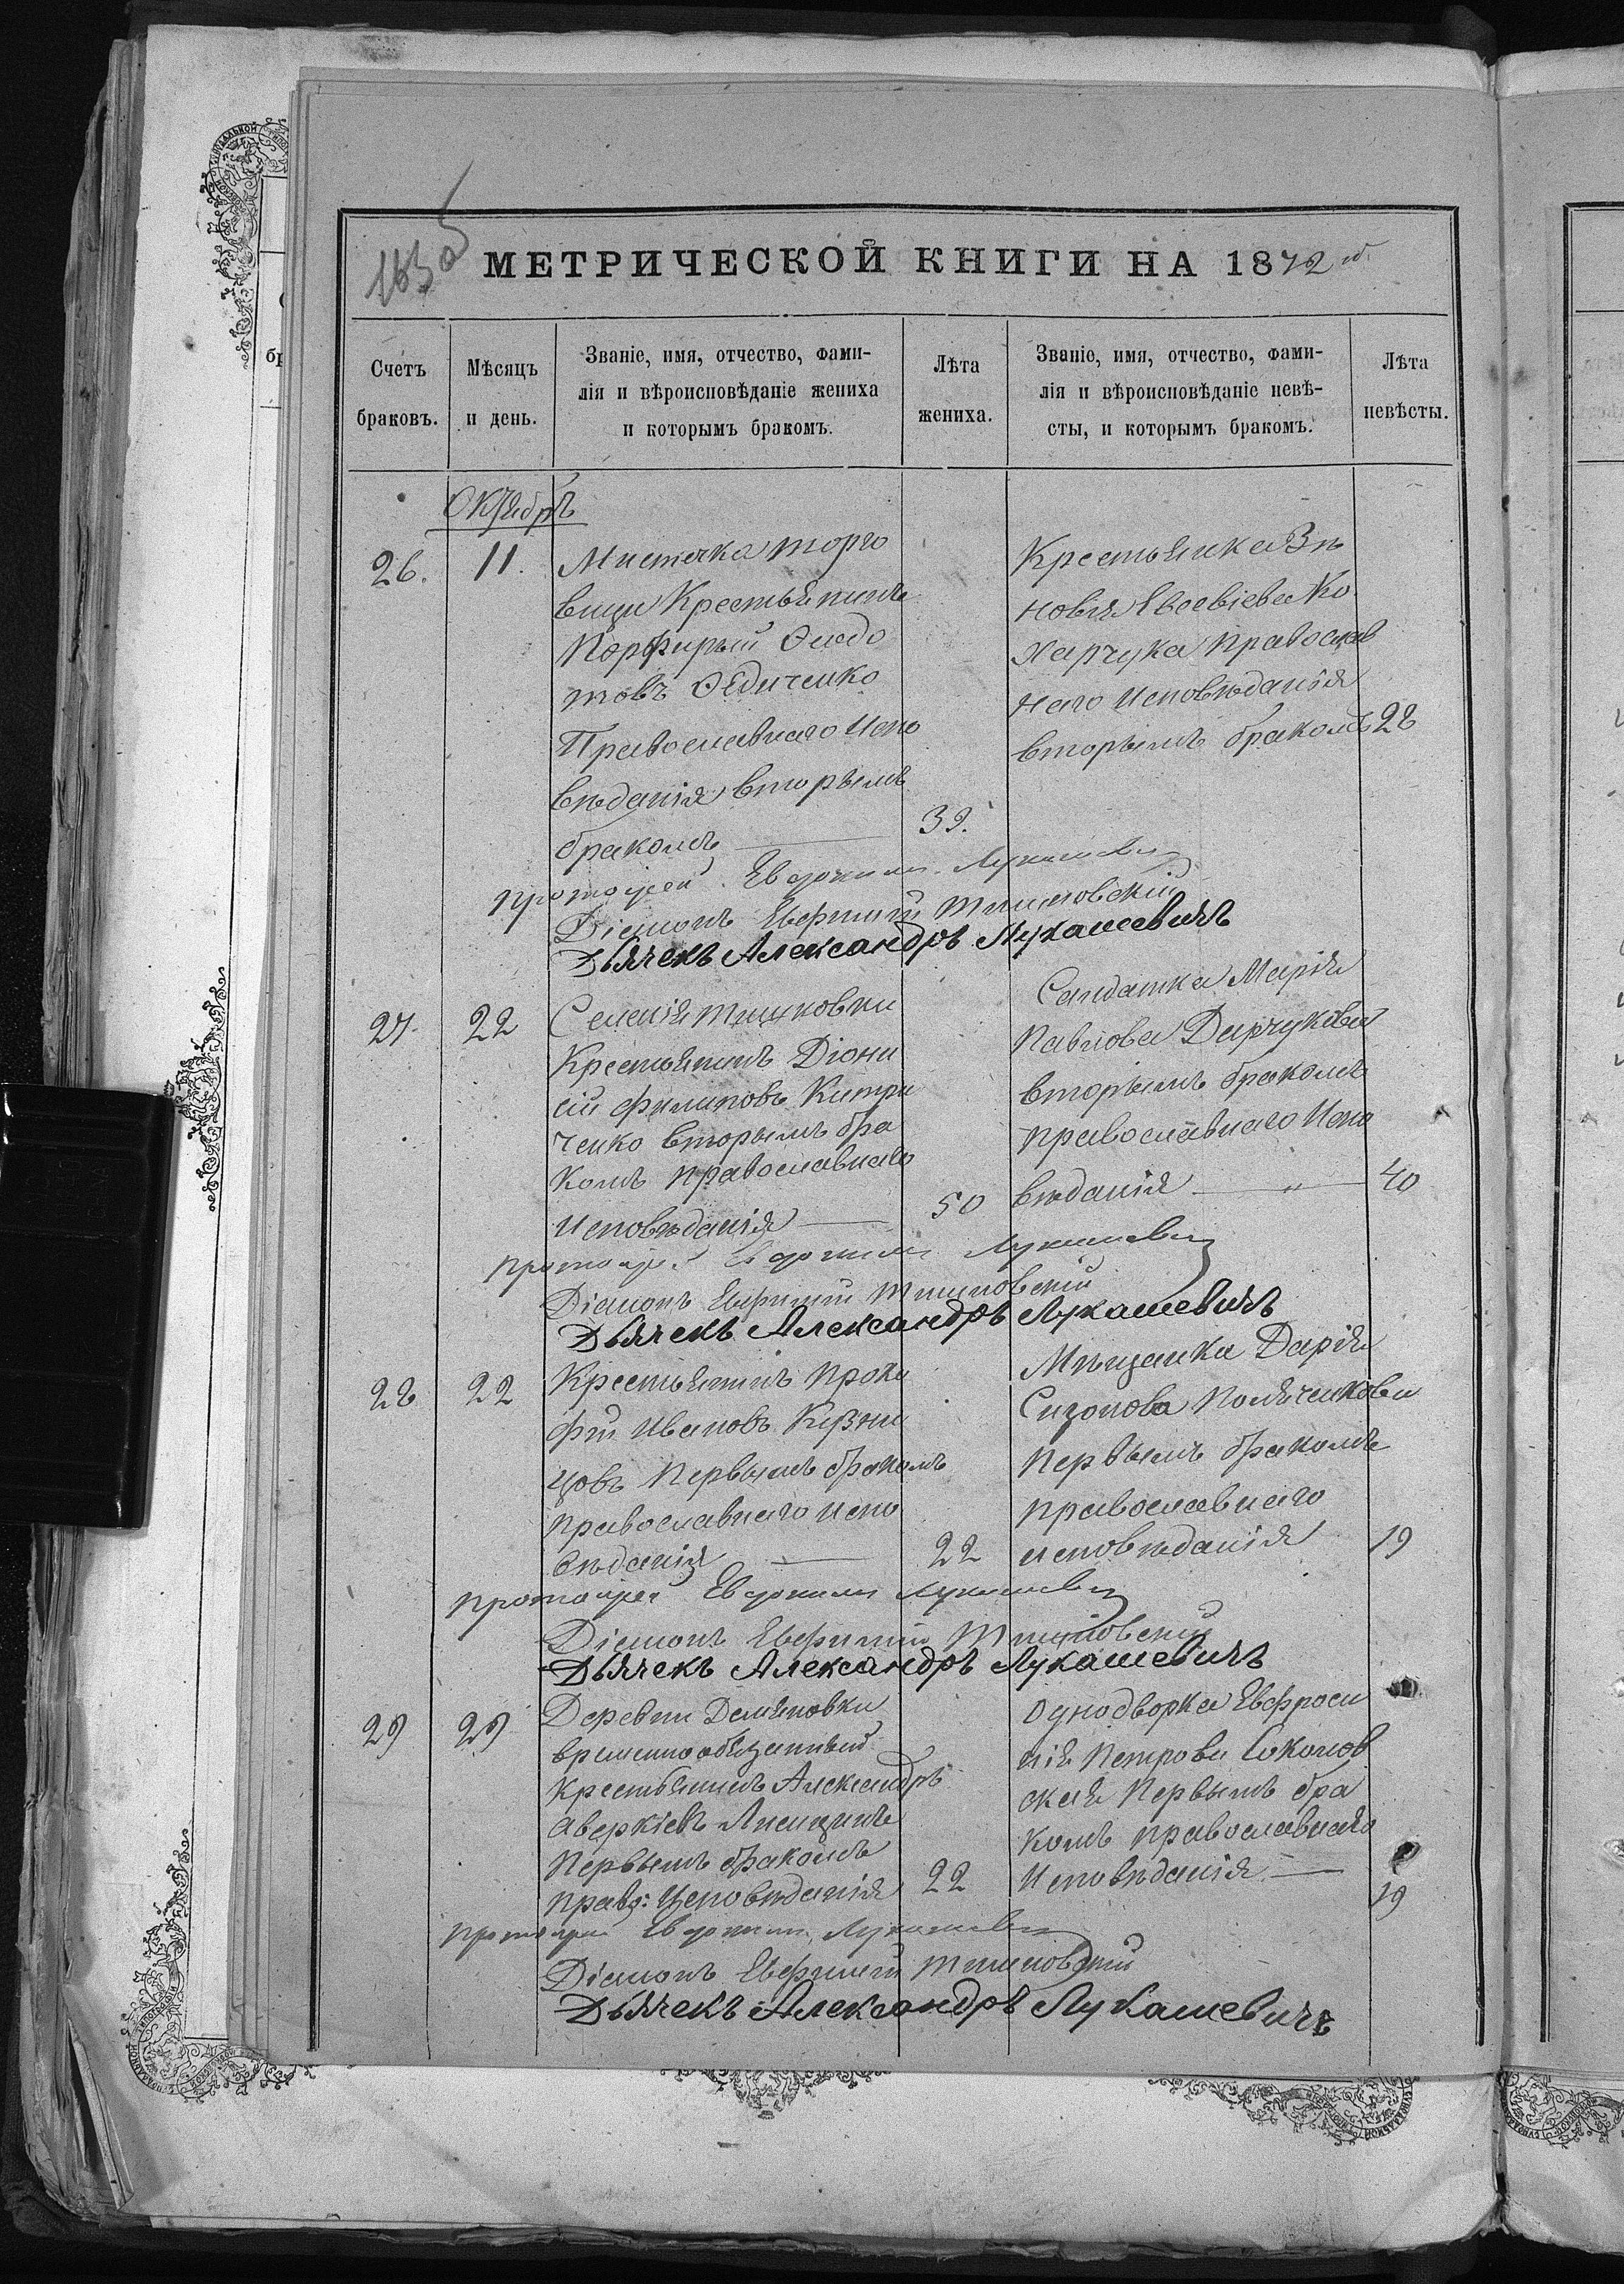 163 об
МЕТРИЧЕСКОЙ КНИГИ НА 1872 г.
Счетъ браковъ.
Мѣсяцъ и день.
Званіе, имя, отчество, фами-
лія и вѣроисповѣданіе жениха
и которымъ бракомъ.
Лѣта жениха.
Званіе, имя, отчество, фами-
лія и вѣроисповѣданіе невѣ-
сты, и которымъ бракомъ.
Лѣта невѣсты.
Октябрь
26. 11.
Мистечка Торго
вици Крестьянинъ
Порфирый Феодо
товъ
Православнаго Испо
вѣданія вторымъ
бракомъ 39.
Крестьянка Зи
новія Евсевіева Ко
харчука Православ
наго Исповѣданія
вторымъ бракомъ 28
Протоіерей Евдокимъ Лукашевичъ
Діаконъ Евфимій
Дьячекъ Александръ Лукашевичъ
27. 22
Селенія
Крестьянинъ Діони
сій Филиповъ Китри
ченко вторымъ бра
комъ Православнаго
Исповѣданія 50
Салдатка Марія
Павлова Дарчукова
вторымъ бракомъ
православнаго Испо
вѣданія " 40
Протоіерей Евдокимъ Лукашевичъ
Діаконъ Евфимій
Дьячекъ Александръ Лукашевичъ
28 22
Крестьянинъ Проко
фій Ивановъ
цовъ Первымъ бракомъ
православнаго испо
вѣданія 22
Мѣщанка Дарія
Сизонова Поляченкова
Первымъ бракомъ
православнаго
исповѣданія 19
Протоіерей Евдокимъ Лукашевичъ
Діаконъ Евфимій
Дьячекъ Александръ Лукашевичъ
29 29
Деревни Демяновки
временнообязанный
Крестьянинъ Александръ
Аверкіевъ Лисицинъ
Первымъ бракомъ
прав: Исповѣданія 22
Однодворка Евфроси
нія Петрова Соколов
ская Первымъ бра
комъ православнаго
Исповѣданія 19
Протоіерей Евдокимъ Лукашевичъ
Діаконъ Евфимій
Дьячекъ Александръ Лукашевичъ